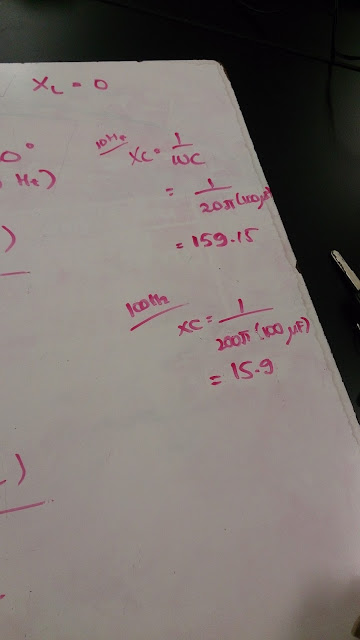 XL = 0
0°
Hz)
)
10Hz
XC = 1/WC
= 1/20π(100μF
= 159.15
100Hz
XC = 1/200π(100μF)
= 15.9
)